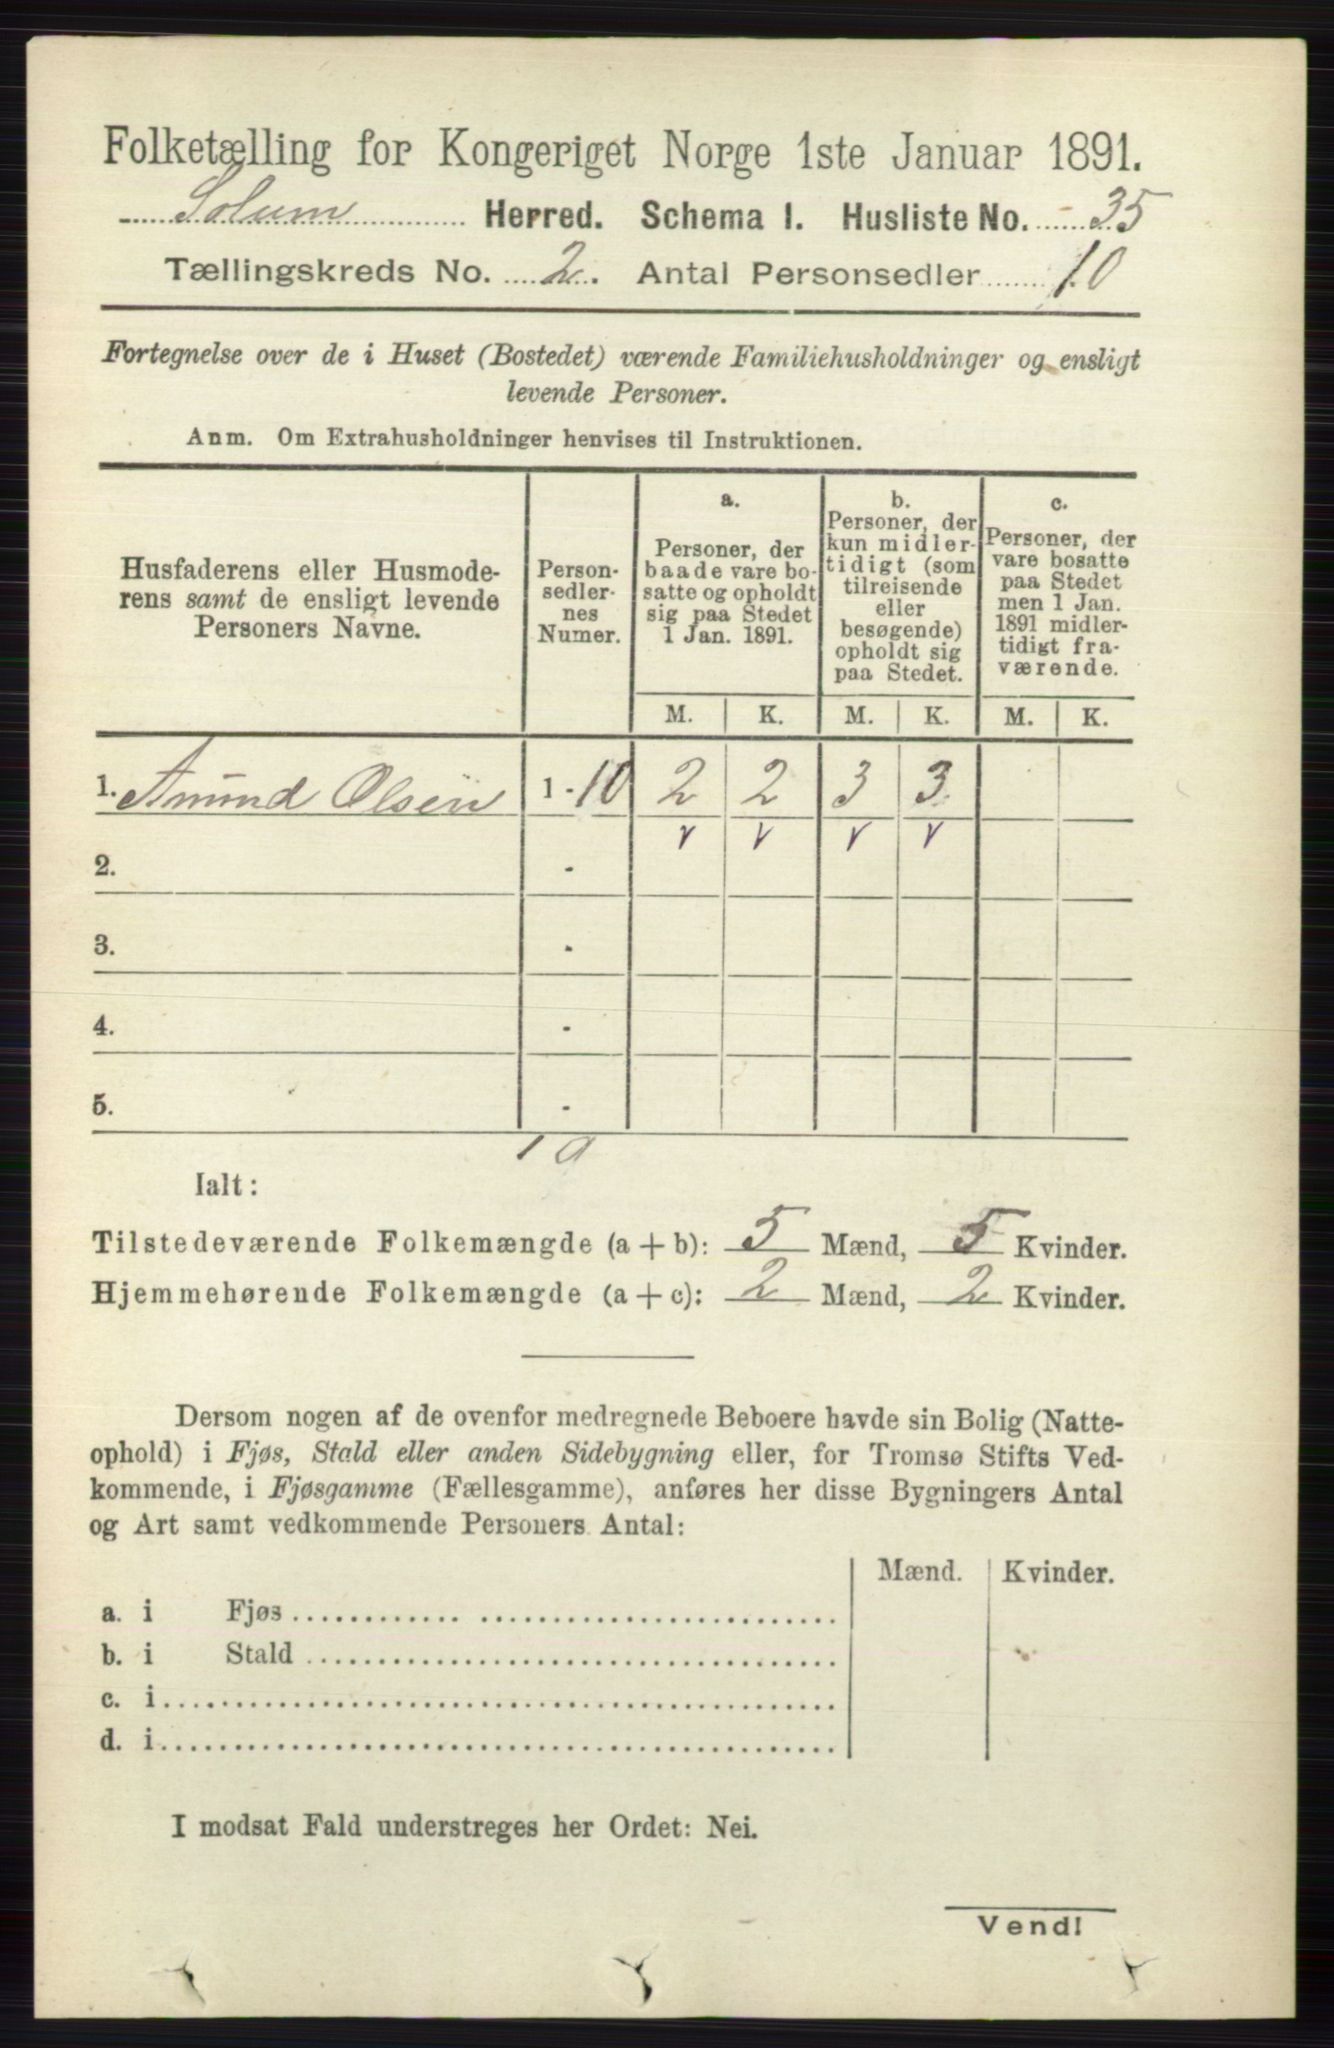 Folketælling for Kongeriget Norge 1ste Januar 1891.
Solum Herred. Schema 1. Husliste No. 35
Tællingskreds No. 2. Antal Personsedler 10
Fortegnelse over de i Huset (Bostedet) værende Familiehusholdninger og ensligt
levende Personer.
Anm. Om Extrahusholdninger henvises til Instruktionen.
Husfaderens eller Husmode-
rens samt de ensligt levende
Personers Navne.
Person-
sedler-
nes
Numer.
a.
Personer, der
baade vare bo-
satte og opholdt
sig paa Stedet
1 Jan. 1891.
b.
Personer, der
kun midler-
tidigt (som
tilreisende
eller
besøgende)
opholdt sig
paa Stedet.
c.
Personer, der
vare bosatte
paa Stedet
men 1 Jan.
1891 midler-
tidigt fra-
værende.
M. K. M. K. M. K.
1. Amund Olsen 1 - 10 2 2 3 3
2. -
3. -
4. -
5. -
10
Ialt:
Tilstedeværende Folkemængde (a + b): 5 Mænd, 5 Kvinder.
Hjemmehørende Folkemængde (a + c): 2 Mænd, 2 Kvinder.
Dersom nogen af de ovenfor medregnede Beboere havde sin Bolig (Natte-
ophold) i Fjøs, Stald eller anden Sidebygning eller, for Tromsø Stifts Ved-
kommende, i Fjøsgamme (Fællesgamme), anføres her disse Bygningers Antal
og Art samt vedkommende Personers Antal:
Mænd. Kvinder.
a. i Fjøs
b. i Stald
c. i
d. i
I modsat Fald understreges her Ordet: Nei.
Vend!